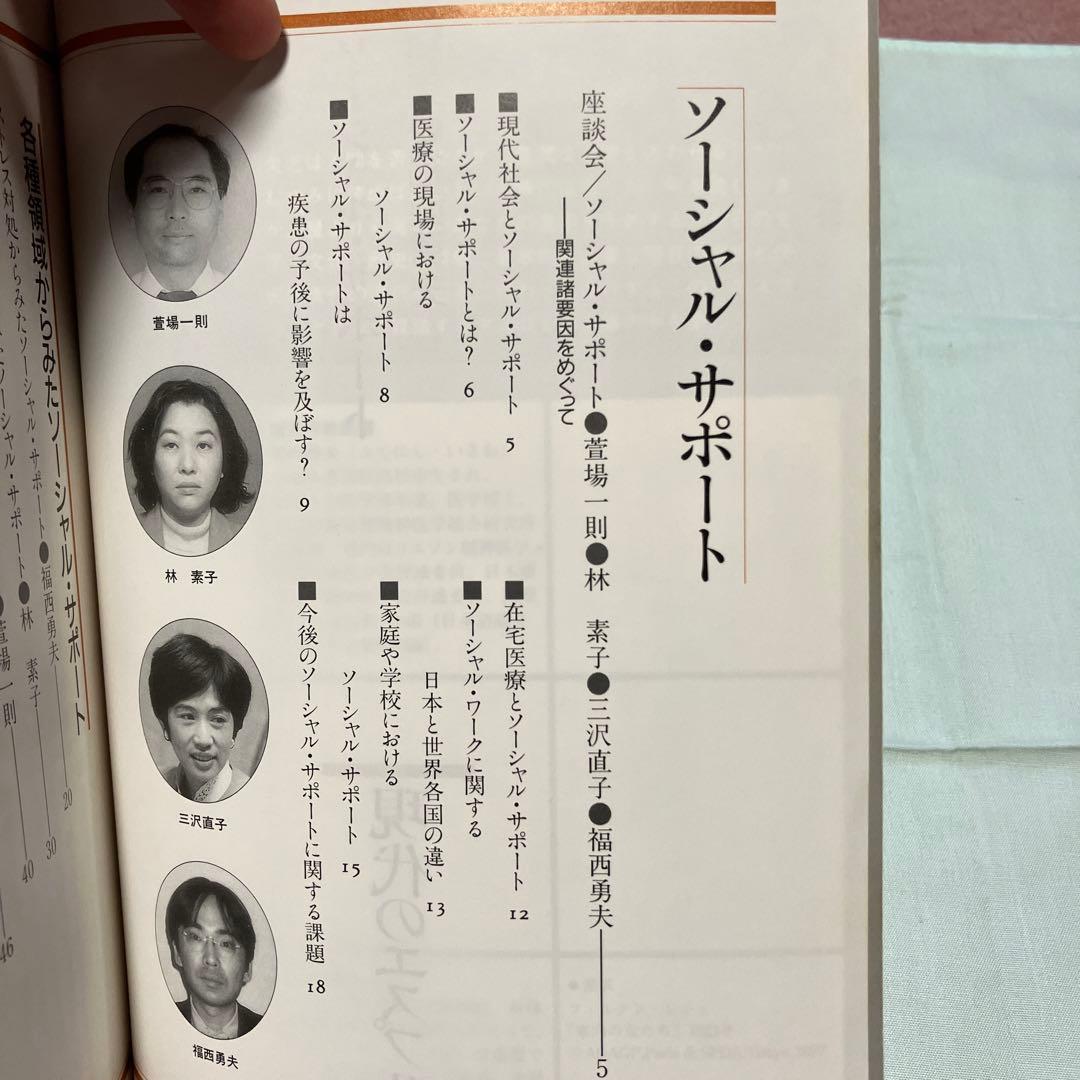 ソーシャル・サポート
座談会／ソーシャル・サポート●萱場一則●林　素子●三沢直子●福西勇夫――5
――関連諸要因をめぐって
■現代社会とソーシャル・サポート 5
■ソーシャル・サポートとは？ 6
■医療の現場における
ソーシャル・サポート 8
■ソーシャル・サポートは
疾患の予後に影響を及ぼす？ 9
■在宅医療とソーシャル・サポート 12
■ソーシャル・ワークに関する
日本と世界各国の違い 13
■家庭や学校における
ソーシャル・サポート 15
■今後のソーシャル・サポートに関する課題 18
萱場一則
林　素子
三沢直子
福西勇夫
各種領域からみたソーシャル・サポート
ストレス対処からみたソーシャル・サポート●福西勇夫――20
ソーシャル・サポート●林　素子――30
萱場一則――40
46
現代のエスプリ